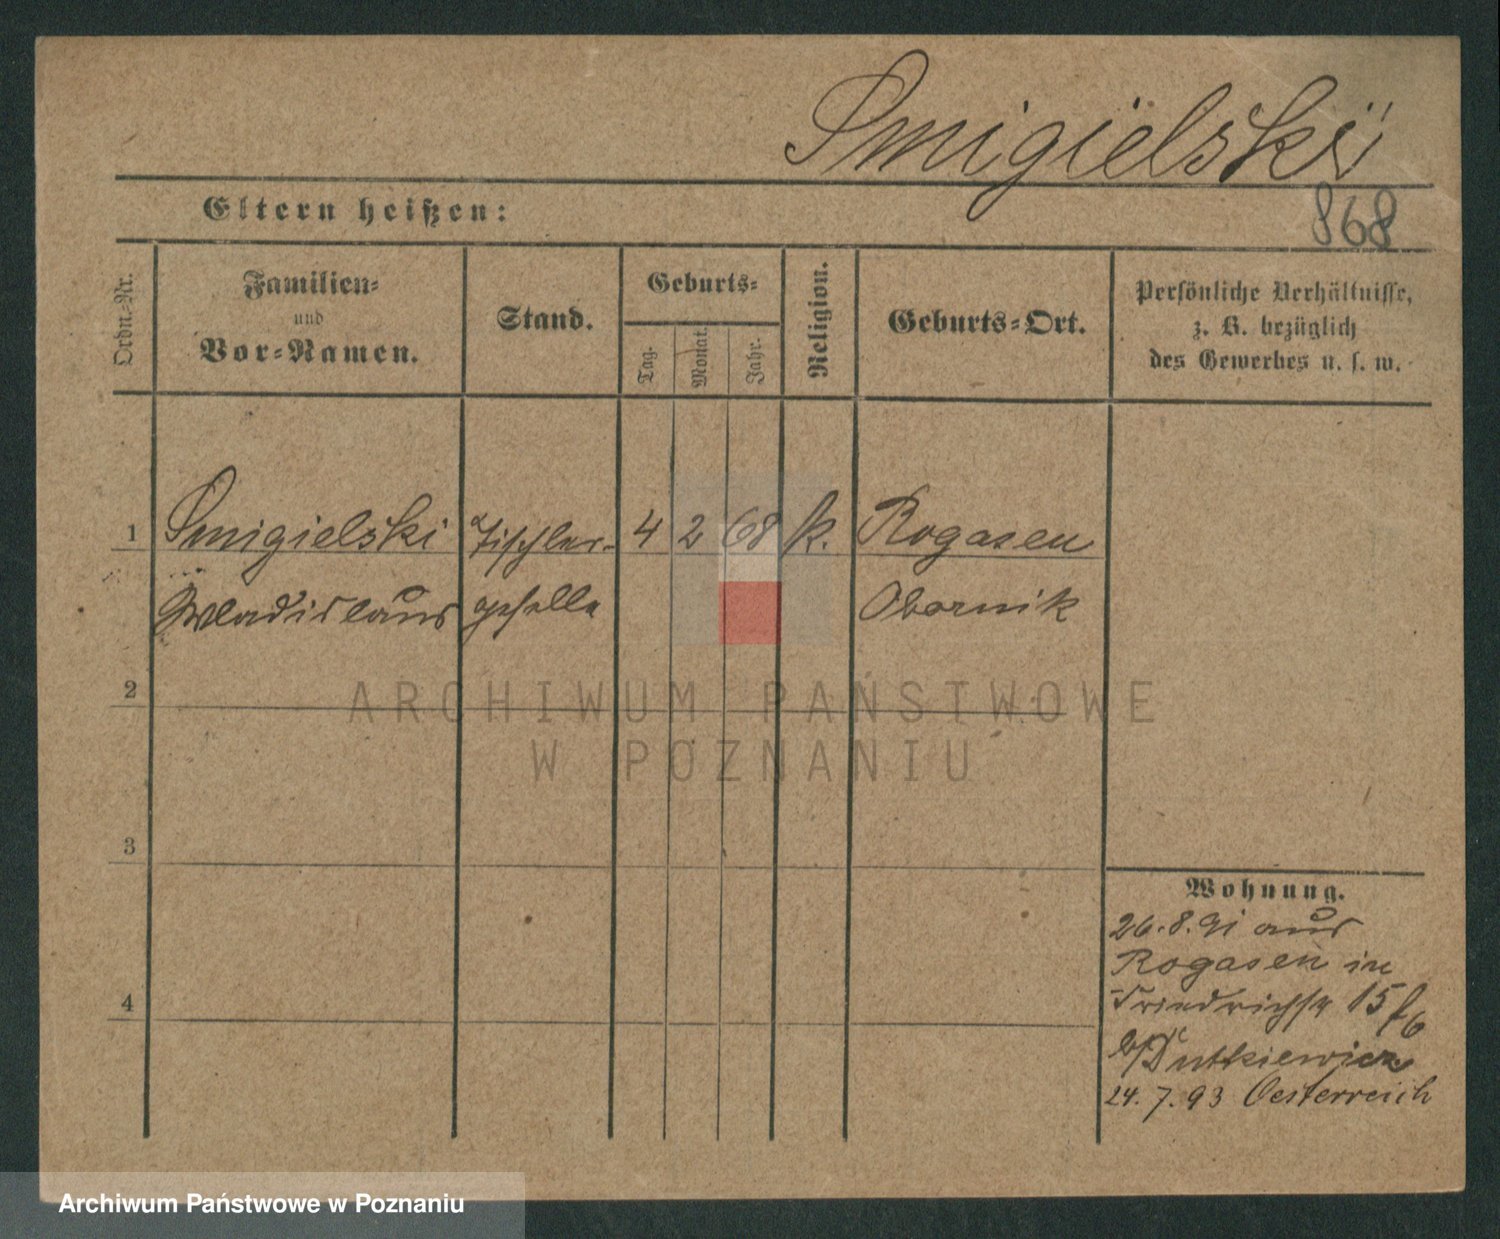 Smigielski
Eltern heißen:
868
Ordn.-Nr.
Familien-
und
Vor-Namen.
Stand.
Geburts-
Tag.
Monat.
Jahr.
Religion.
Geburts-Ort.
Persönliche Verhältnisse,
z. B. bezüglich
des Gewerbes u. s. w.
1 Smigielski Tischler- 4 2 68 k. Rogasen
Wladislaus geselle Obornik
2
ARCHIWUM PAŃSTWOWE
W POZNANIU
3
Wohnung.
26.8.91 aus
Rogasen in
4
Friedrichstr 15
b/Dutkiewicz
24.7.93 Oesterreich
Archiwum Państwowe w Poznaniu